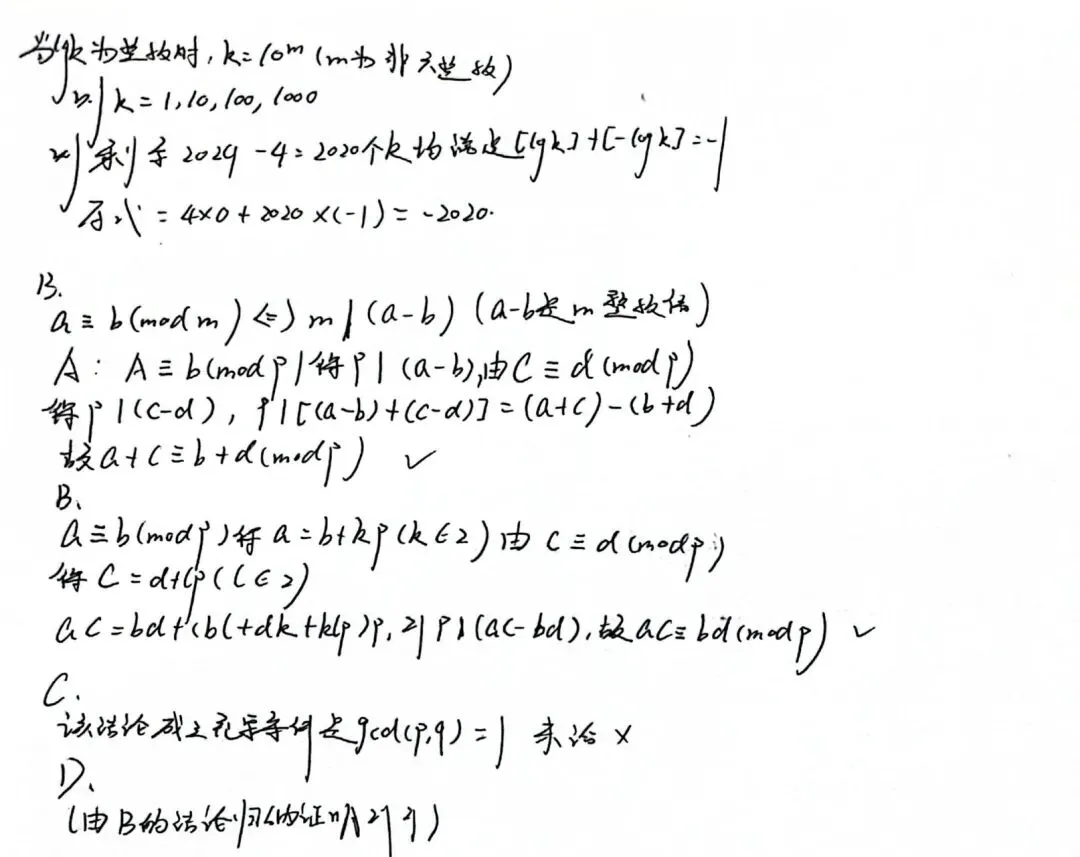 当lgk为整数时, k=10^m (m为非负整数)
则 k = 1, 10, 100, 1000
则剩余 2024 - 4 = 2020个k均满足[lgk]+[-lgk]=-1
原式 = 4×0 + 2020×(-1) = -2020.
13.
a ≡ b(mod m) ⇔ m | (a-b) (a-b是m整数倍)
A: A ≡ b(mod p)得 p | (a-b), 由C ≡ d(mod p)
得p | (c-d), p | [(a-b)+(c-d)] = (a+c)-(b+d)
故a+c ≡ b+d(mod p) ✓
B.
a ≡ b(mod p)得 a = b+kp(k∈Z) 由 c ≡ d(mod p)
得 C = d+lp(l∈Z)
ac = bd+(bl+dk+klp)p, 则 p | (ac-bd), 故ac ≡ bd(mod p) ✓
C.
该结论成立充要条件是gcd(p,q) = 1 ×
D.
(由B的结论归纳证明即可)